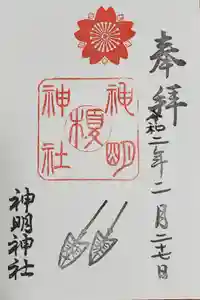 奉拝
令和二年二月二七日
神明
榎
神社
神明神社